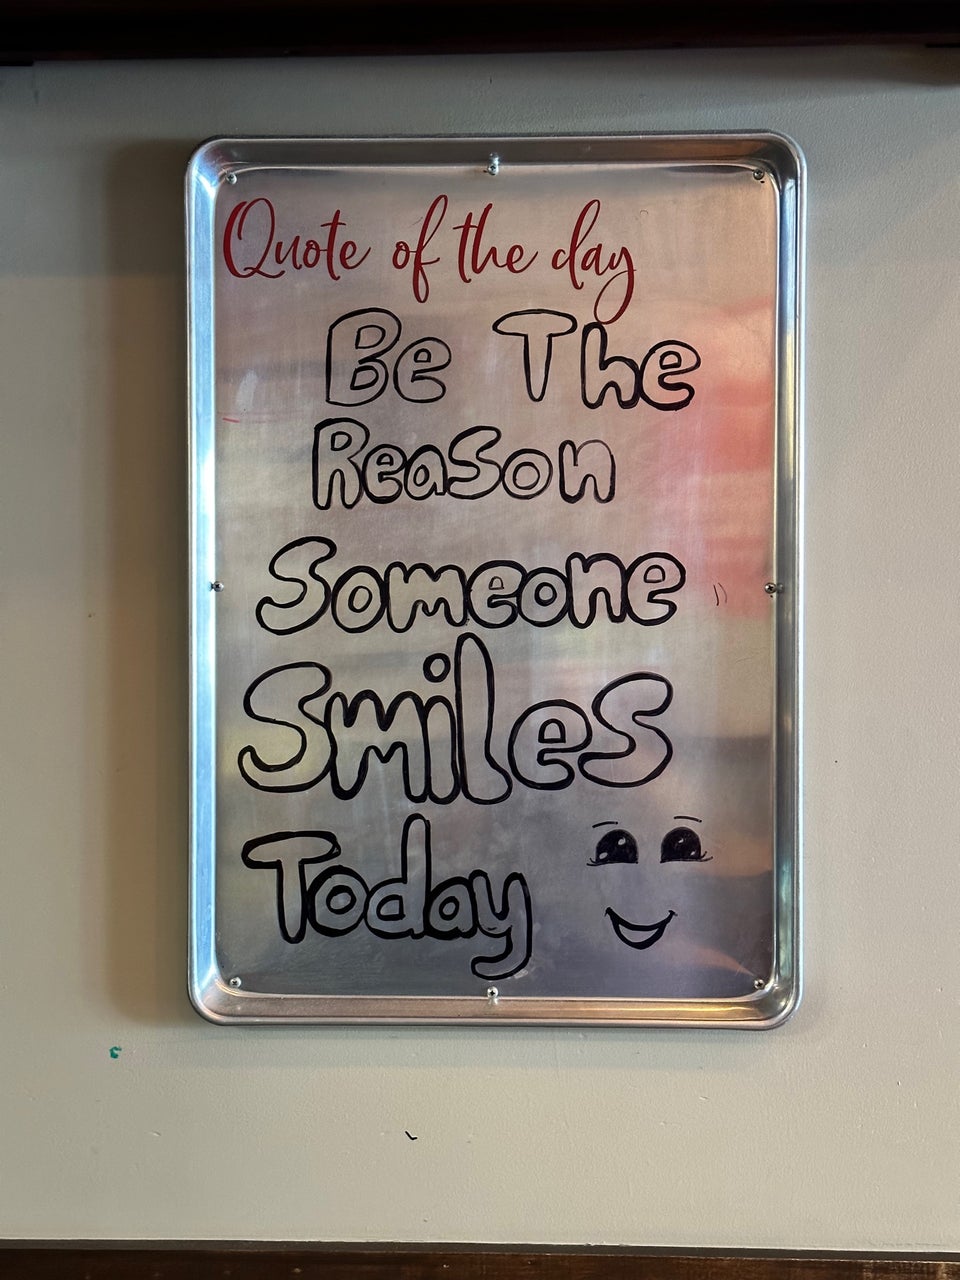 Quote of the day
Be The
Reason
Someone
Smiles
Today